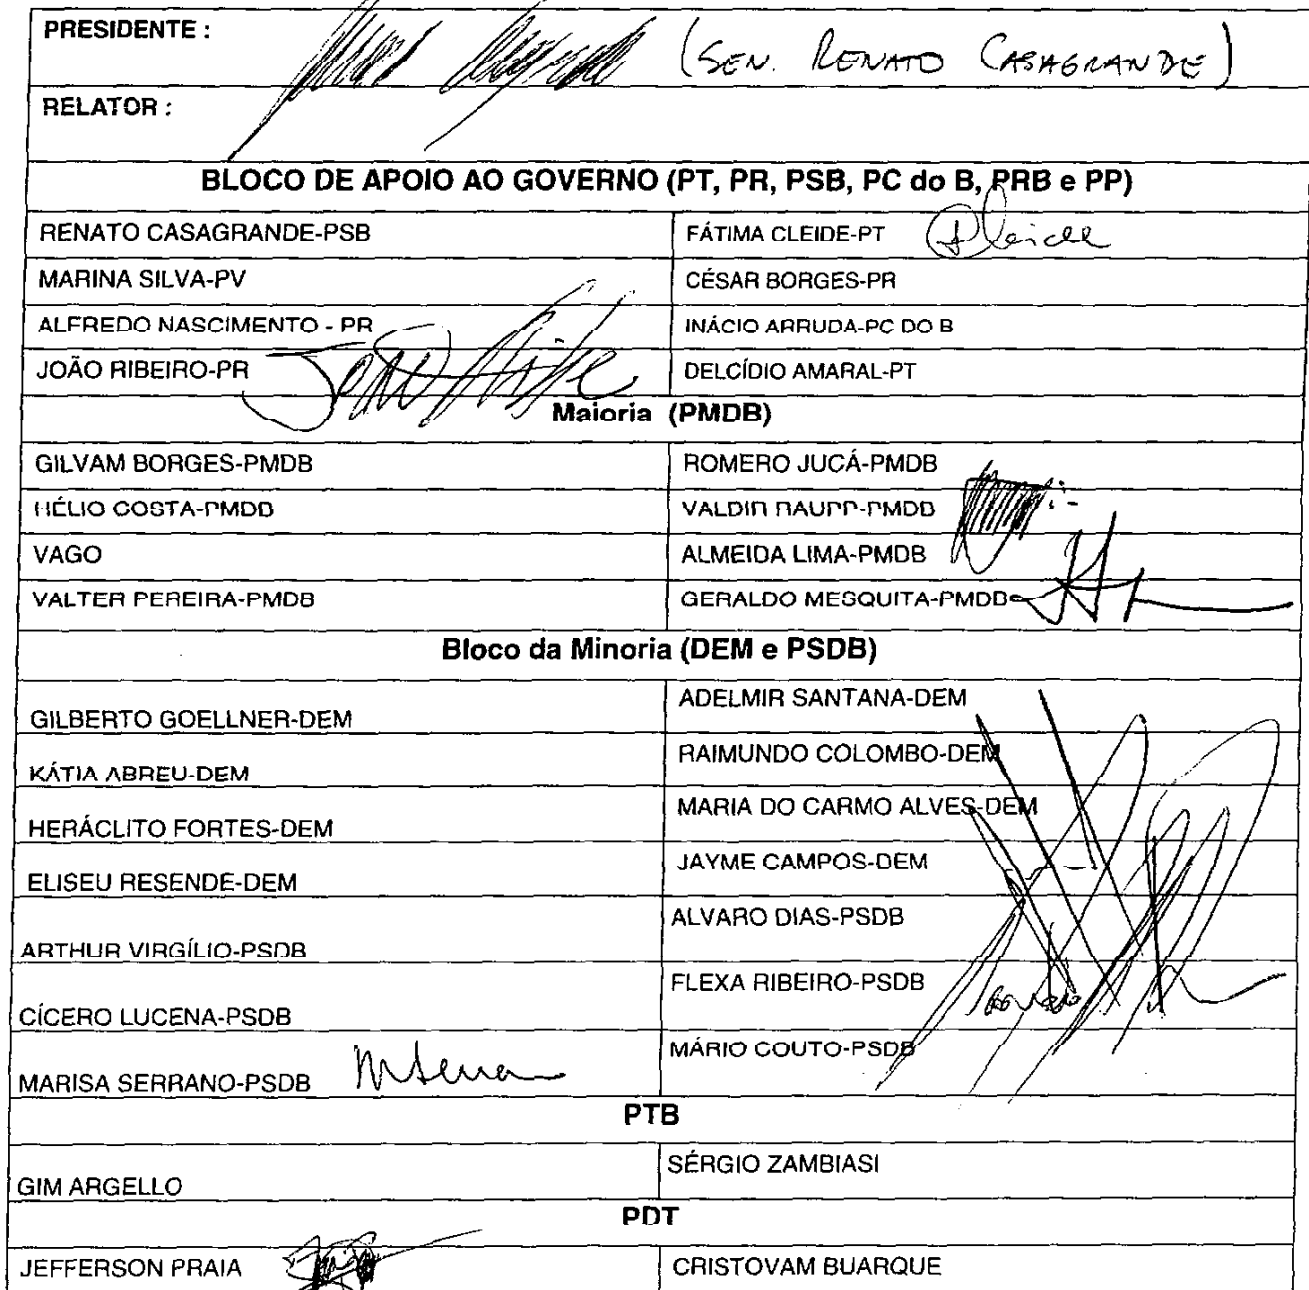 PRESIDENTE :
(SEN. RENATO CASAGRANDE)
RELATOR :
BLOCO DE APOIO AO GOVERNO (PT, PR, PSB, PC do B, PRB e PP)
RENATO CASAGRANDE-PSB
FÁTIMA CLEIDE-PT
MARINA SILVA-PV
CÉSAR BORGES-PR
ALFREDO NASCIMENTO - PR
INÁCIO ARRUDA-PC DO B
JOÃO RIBEIRO-PR
DELCÍDIO AMARAL-PT
Maioria (PMDB)
GILVAM BORGES-PMDB
ROMERO JUCÁ-PMDB
HÉLIO COSTA-PMDB
VALDIR RAUPP-PMDB
VAGO
ALMEIDA LIMA-PMDB
VALTER PEREIRA-PMDB
GERALDO MESQUITA-PMDB
Bloco da Minoria (DEM e PSDB)
GILBERTO GOELLNER-DEM
ADELMIR SANTANA-DEM
KÁTIA ABREU-DEM
RAIMUNDO COLOMBO-DEM
HERÁCLITO FORTES-DEM
MARIA DO CARMO ALVES-DEM
ELISEU RESENDE-DEM
JAYME CAMPOS-DEM
ARTHUR VIRGÍLIO-PSDB
ALVARO DIAS-PSDB
CÍCERO LUCENA-PSDB
FLEXA RIBEIRO-PSDB
MARISA SERRANO-PSDB
MÁRIO COUTO-PSDB
PTB
GIM ARGELLO
SÉRGIO ZAMBIASI
PDT
JEFFERSON PRAIA
CRISTOVAM BUARQUE